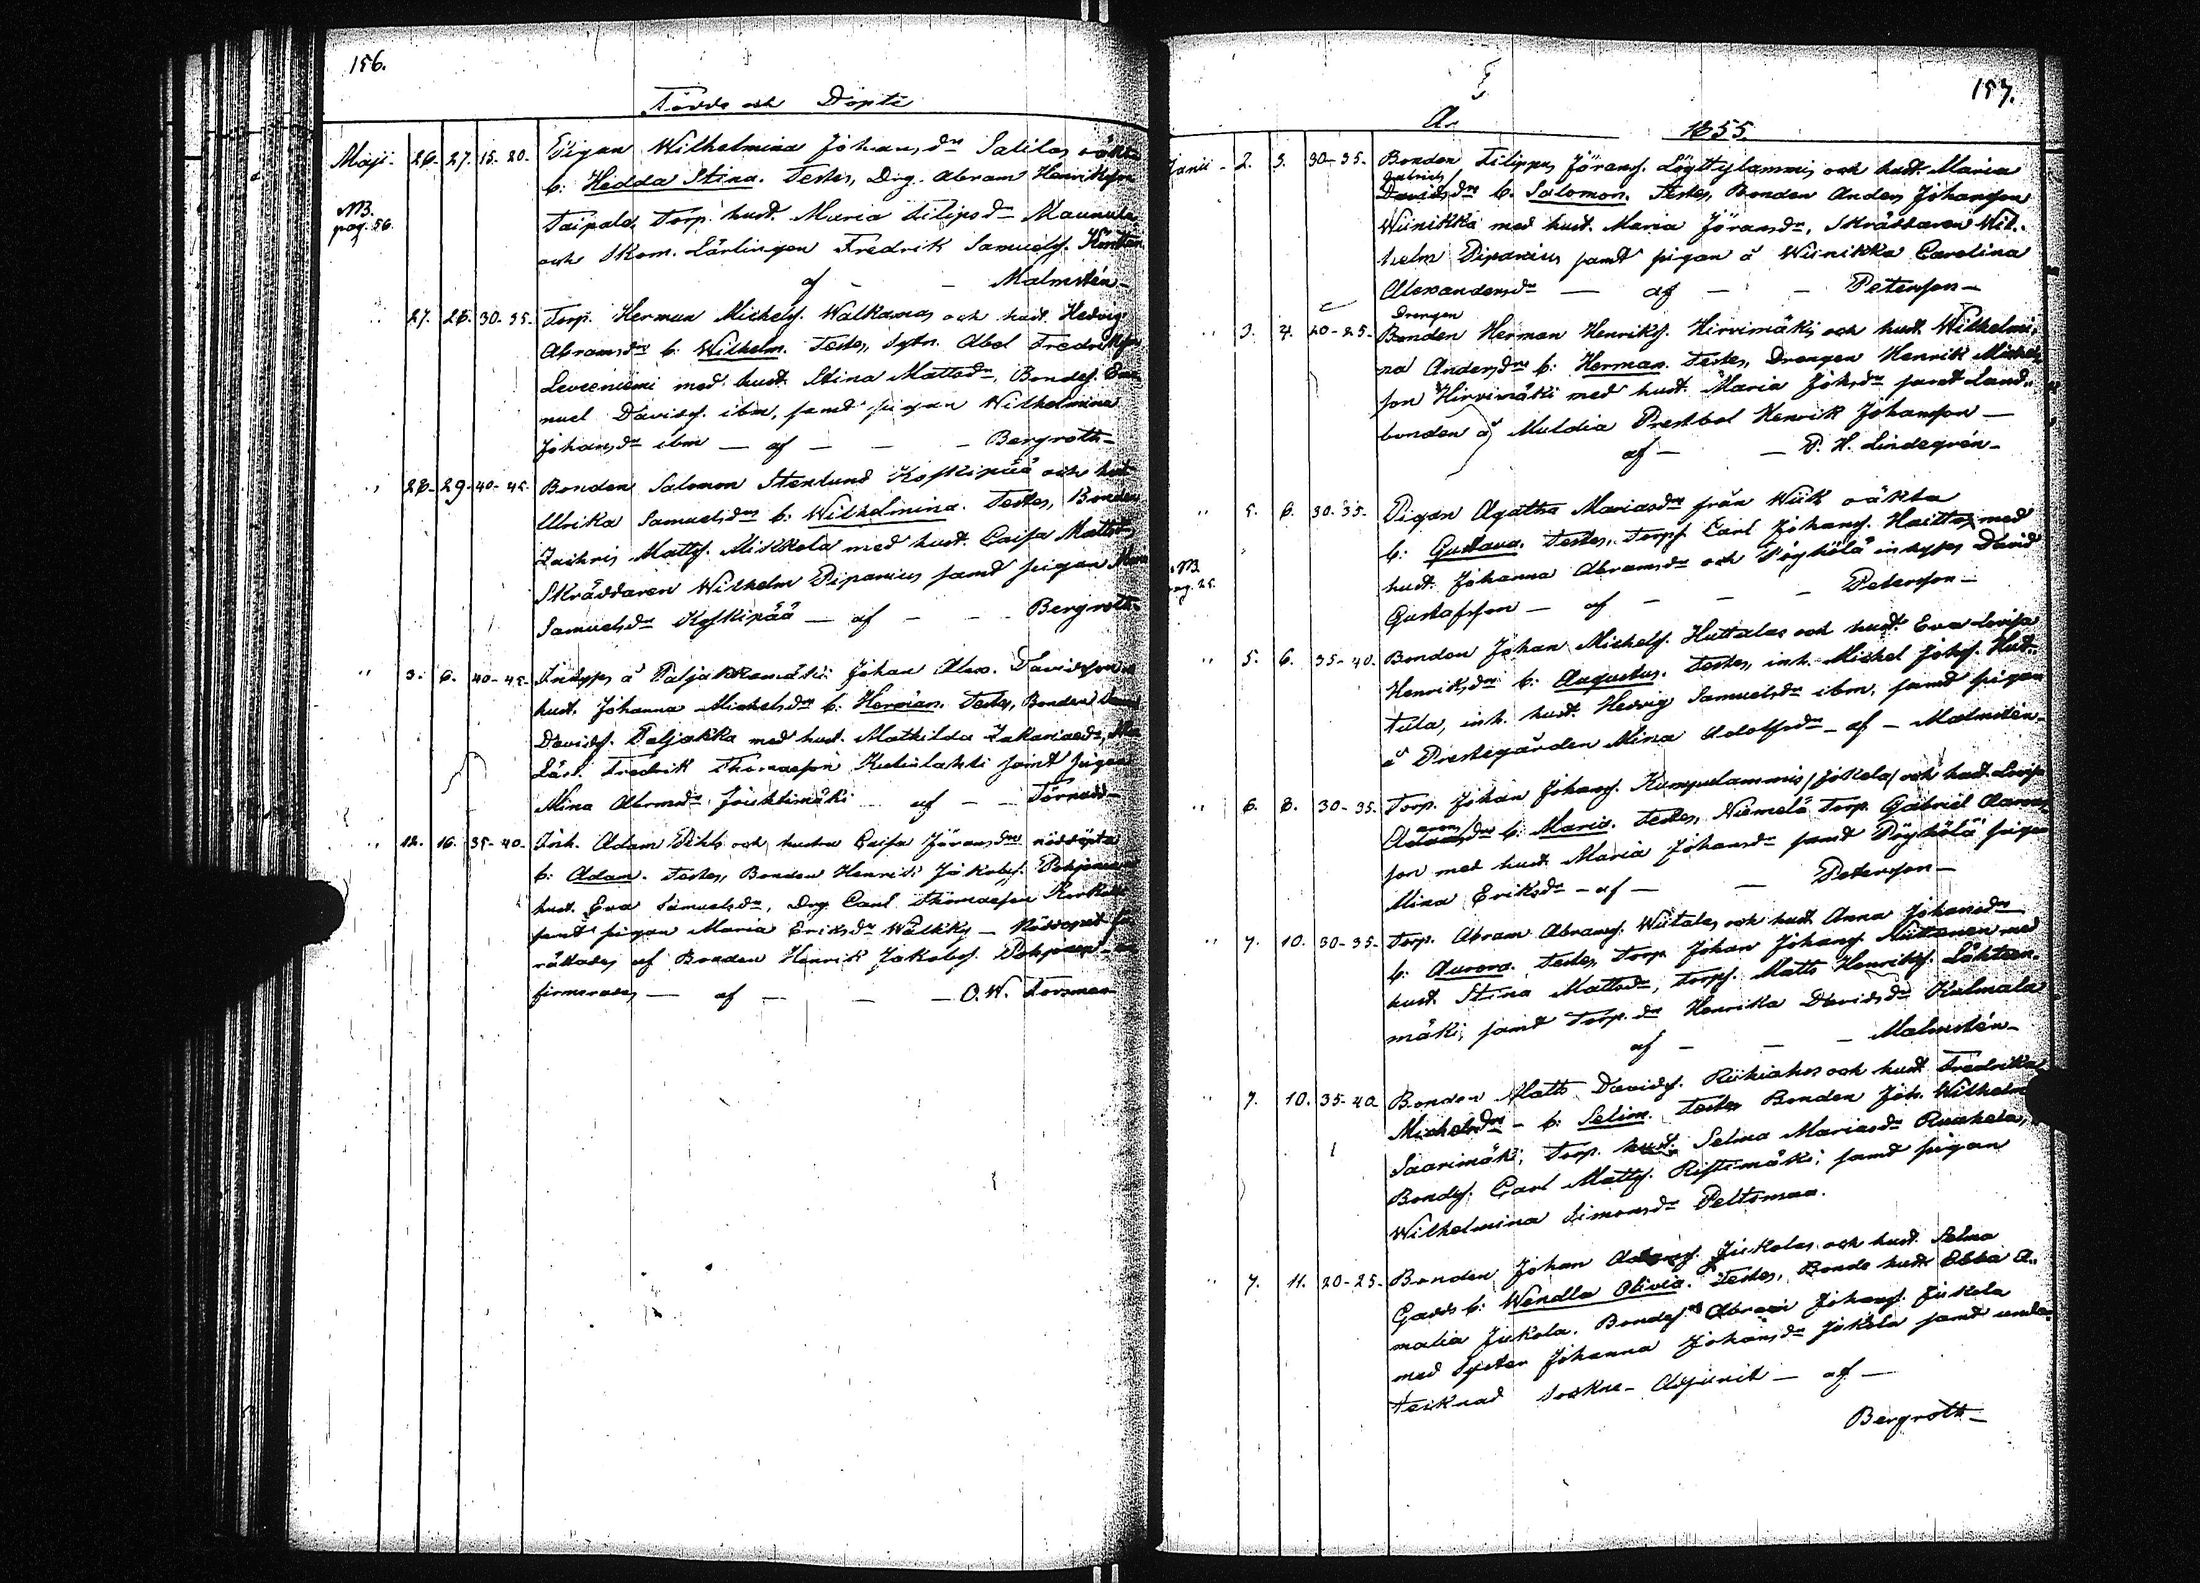 156.
Födde och Döpte
Maji. 26. 27. 15-20. Pigan Wilhelmina Johansdr Salilas oäkta
b: Hedda Stina. Testes, Drg. Abram Henriksson
NB. pag. 56.
Taipale, Torp. hust. Maria Filipsdr Maunula
och Skom. Lärlingen Fredrik Samuelss.
af - - Malmstén-
" 27. 28. 30-35. Torp. Herman Michelss. Walkamas och hust. Hedvig
Abramsdrs b: Wilhelm. Testes, Sytn. Abel Fredriksson
Leveeniemi med hust. Stina Mattsdr, Bondes. Ema-
nuel Davidss. ibm, samt pigan Wilhelmina
Johansdr ibm - af - - - Bergroth-
" 28. 29. 40-45. Bonden Salomon Stenlund Koskipää och hust
Ulrika Samuelsdrs b: Wilhelmina. Testes, Bonden
Zachris Mattss. Mikkela med hust. Caisa Mattsdr
Skräddaren Wilhelm Piparius samt pigan
Samuelsdr Koskipää - af - - Bergroth-
" 3. 6. 40-45. Inhyses å Paljakkamäki Johan Alex. Davidsson o
hust. Johanna Michelsdrs b: Herman. Testes, Bonden
Davidss. Paljakka med hust. Mathilda Zakariasdr,
Lärl. Fredrik Thomasson samt pigan
Mina Abramsdr af - - Törnudd-
" 12. 16. 35-40. Inh. Adam Pihls och hustru Caisa Göransdrs nöddöpta
b: Adam. Testes, Bonden Henrik Jakobss.
hust. Eva Samuelsdr, Drg Carl Thomasson
samt pigan Maria Eriksdr Wälkky - Nöddopet för
rättades af Bonden Henrik Jakobss.
firmerades - af - - - O. W. Forsman
157.
År 1855.
Junii - 2. 3. 30-35. Bonden Filippus Göranss. Löyttylammis och hust. Maria
Gabriels
Davidsdrs b: Salomon. Testes, Bonden Anders Johansson
Wiinikka med hust. Maria Göransdr, Skräddaren Wil-
helm Piparius samt pigan å Wiinikka Carolina
Alexandersdr - af - - Peterson-
Drengen
" 3. 4. 20-25. Bonden Herman Henrikss. Hirvimäkis och hust. Wilhelmi-
na Andersdrs b: Herman. Testes, Drengen Henrik Michels
son Hirvimäki med hust. Maria Johsdr samt Land-
bonden å Muldia Prestbol Henrik Johansson -
af - - P. H. Lindegrén-
" 5. 6. 30-35. Pigan Agatha Mariasdrs från Wiik oäkta
b: Gustava. Testes, Torps. Carl Johanss. med
NB. pag. 25.
hust. Johanna Abramsdr och Pöyhölä inhyses David
Gustafsson - af - - - Peterson-
" 5. 6. 35-40. Bonden Johan Michelss. Huttulas och hust. Eva Lovisa
Henriksdrs b: Augustus. Testes, inh. Michel Johss. Hut-
tula, inh. hust. Hedvig Samuelsdr ibm, samt pigan
å Prestegården Mina Adolfsdr - af - Malmstén-
" 6. 8. 30-35. Torp. Johan Johanss. Kumpulammis /Jokela/ och hust. Lovisa
Arons
Adamsdrs b: Maria. Testes, Niemelä Torp. Gabriel Aarons
son med hust. Maria Johansdr samt Pöyhölä pigan
Mina Eriksdr - af - - Peterson-
" 7. 10. 30-35. Torp. Abram Abramss. Wiitalas och hust. Anna Johansdrs
b: Aurora. Testes, Torp. Johan Johanss. Niitanen med
hust. Stina Mattsdr, Torps. Matts Henrikss. Lähteen-
mäki, samt Torp. dr Henrika Davidsdr Kulmala
af - - - Malmstén-
" 7. 10. 35-40 Bonden Matts Davidss. Riihiahos och hust. Fredrika
Michelsdrs - b: Selim. Testes Bonden Joh. Wilhelm
Saarimäki, Torp. hust. Selma Mariasdr Ruahela,
Bondss. Carl Mattss. Ristimäki, samt pigan
Wilhelmina Simonsdr Peltomaa.
" 7. 11. 20-25. Bonden Johan Adamss. Jukolas och hust. Selma
Gadds b: Wendla Olivia. Testes, Bonde hust. Ebba A-
malia Jukola. Bondes. Abram Johanss. Jukola
med Syster Johanna Johansdr Jokela samt under
tecknad Sockne-Adjunct - af -
Bergroth-